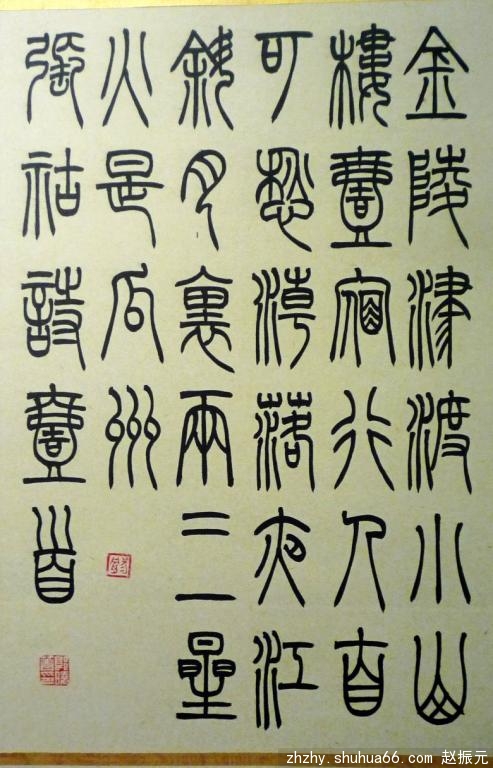 金陵津渡小山
樓壹宿行人自
可愁潮落夜江
斜月裏兩三星
火是瓜州
張祜詩壹首
zhzhy.shuhua66.com 赵振元